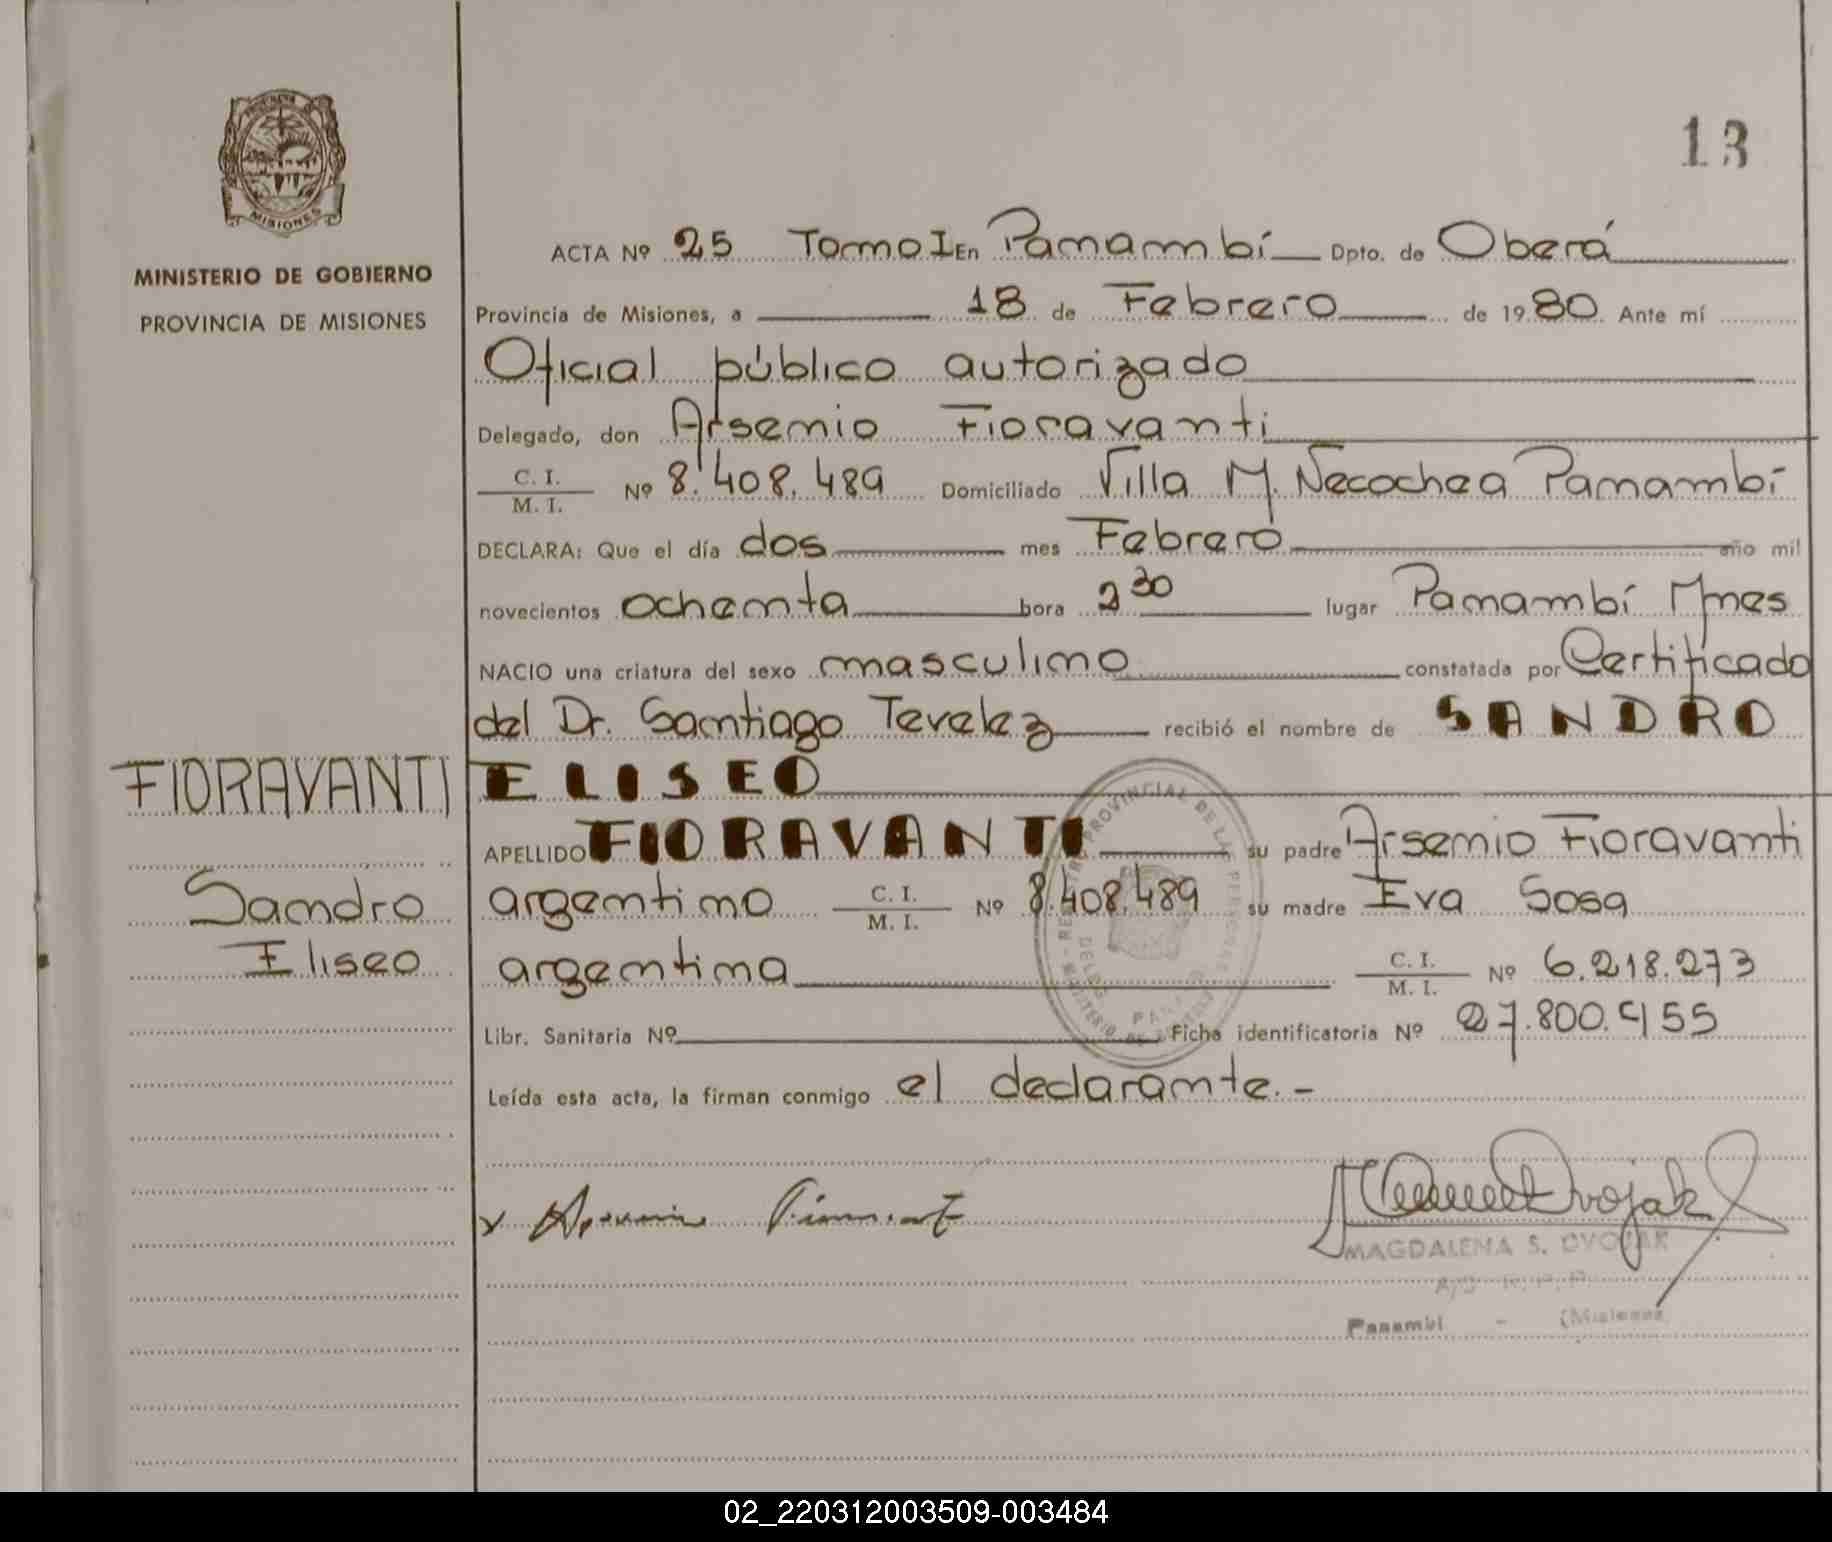 13
MISIONES
MINISTERIO DE GOBIERNO
PROVINCIA DE MISIONES
ACTA Nº 25 Tomo I En Panambí Dpto. de Oberá
Provincia de Misiones, a 18 de Febrero de 1980. Ante mí
Oficial público autorizado
Delegado, don Arsenio Fioravanti
C. I.
M. I. Nº 8.408.489 Domiciliado Villa M. Necochea Panambí
DECLARA: Que el día dos mes Febrero año mil
novecientos ochenta hora 2 30 lugar Panambí Mnes
NACIO una criatura del sexo masculino constatada por Certificado
del Dr. Santiago Tevelez recibió el nombre de SANDRO
ELISEO
FIORAVANTI
APELLIDO FIORAVANTI su padre Arsenio Fioravanti
Sandro
argentino C. I. M. I. Nº 8.408.489 su madre Eva Sosa
Eliseo
argentina C. I. M. I. Nº 6.218.273
Libr. Sanitaria Nº Ficha identificatoria Nº 27.800.455
Leída esta acta, la firman conmigo el declarante.-
MAGDALENA S. DVOJAK
Panambí - (Misiones)
02_220312003509-003484